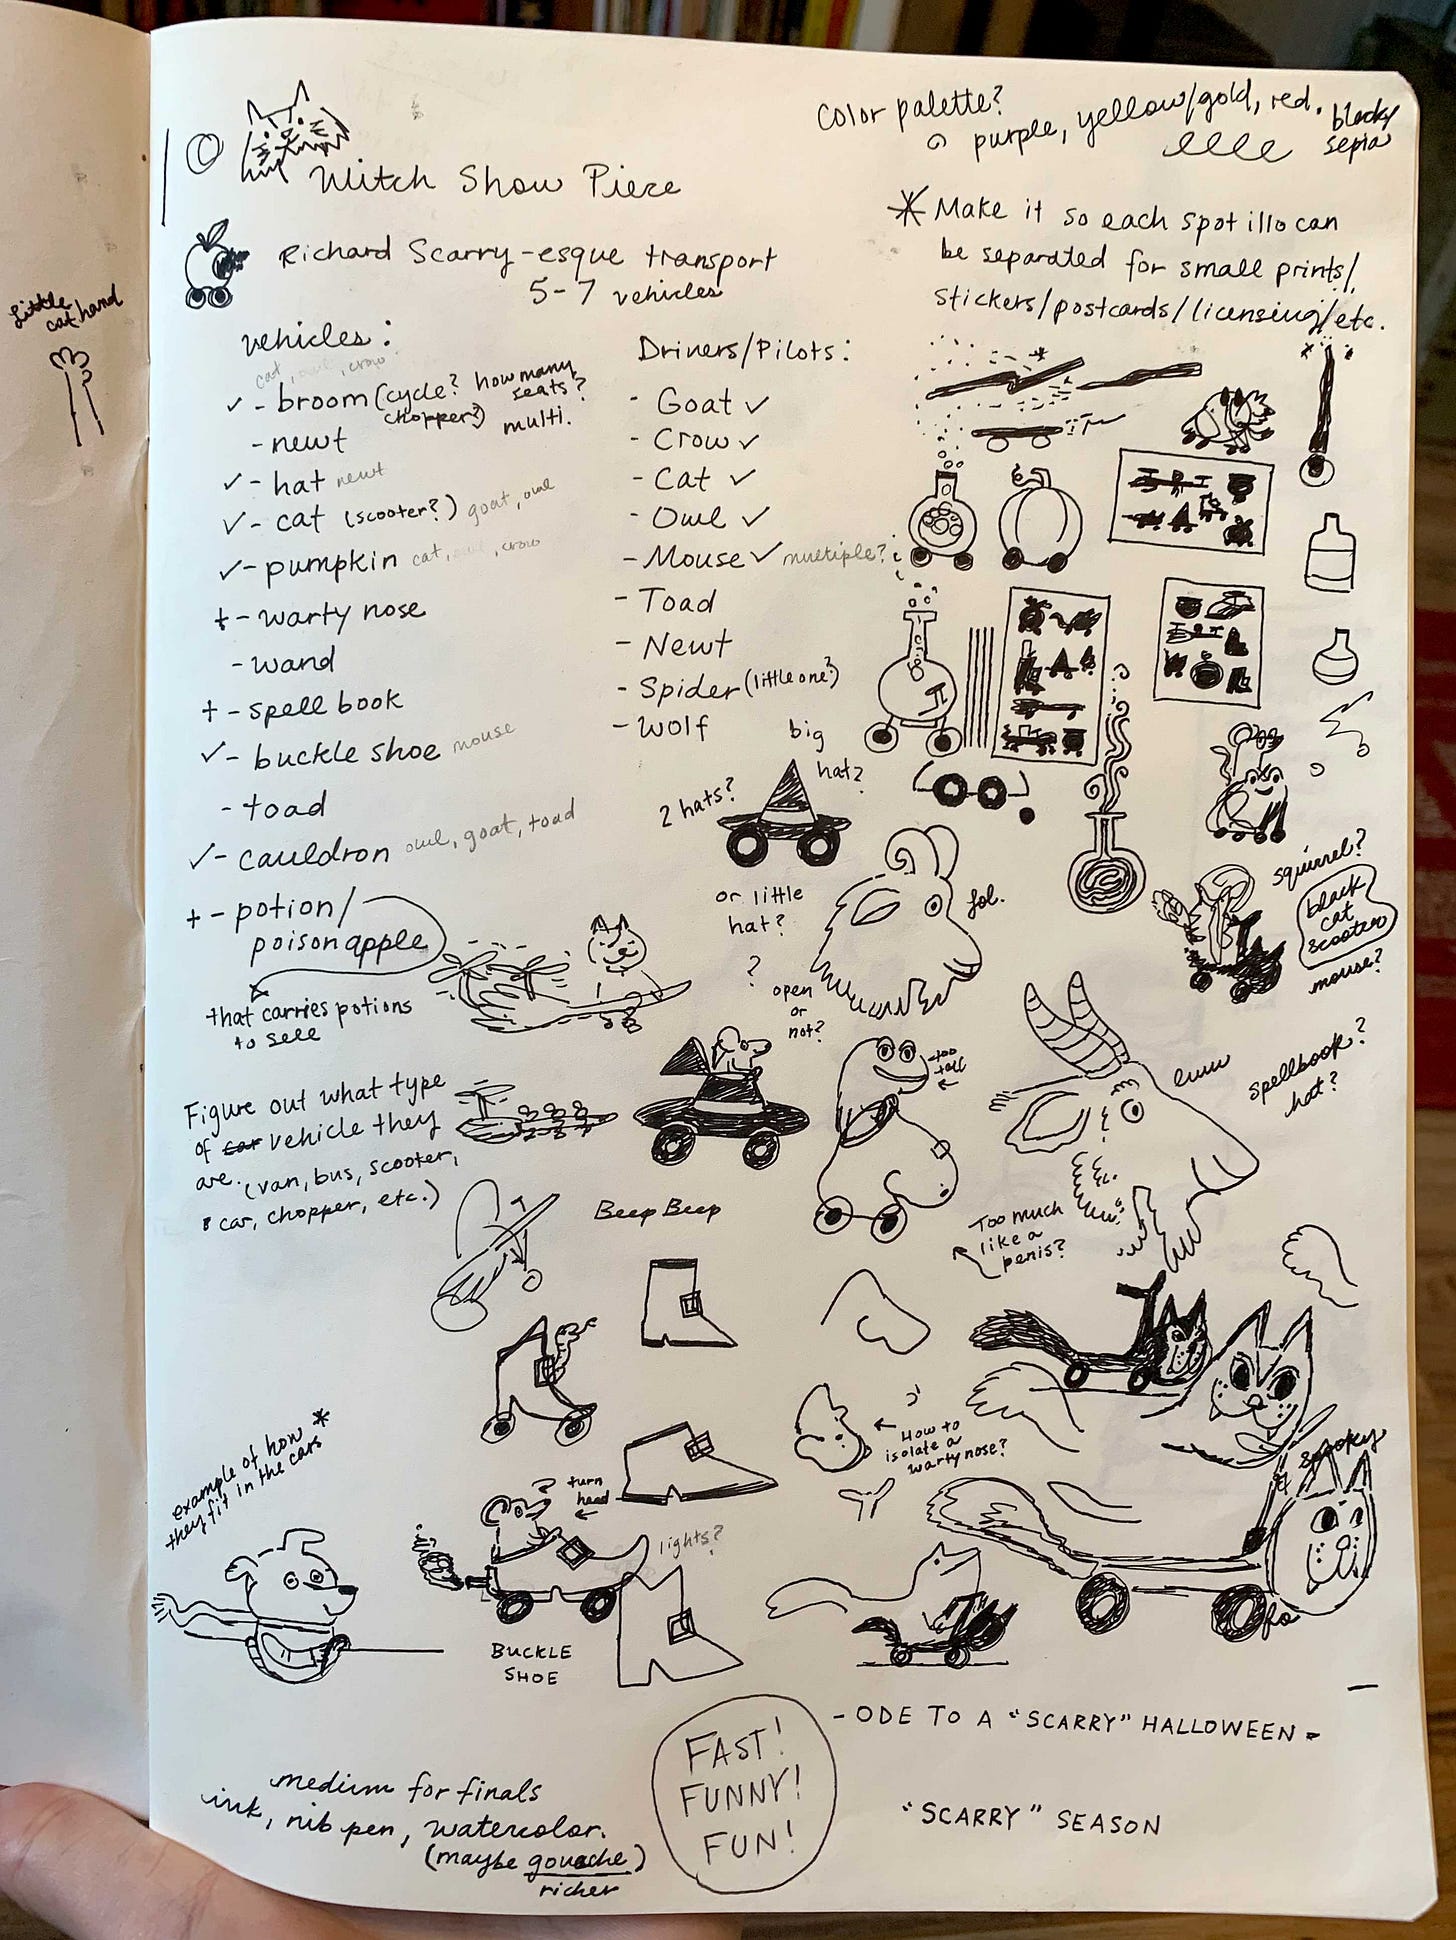 Color palette?
purple, yellow/gold, red.
black/
sepia
Witch Show Piece
* Make it so each spot illo can
be separated for small prints/
stickers/postcards/licensing/etc.
Richard Scarry-esque transport
5-7 vehicles
Little
cat hand
vehicles:
cat, owl, crow
✓ - broom (cycle? how many
chopper?) seats?
multi.
- newt
✓ - hat newt
✓ - cat (scooter?) goat, owl
✓ - pumpkin cat, owl, crow
+ - warty nose
- wand
+ - spell book
✓ - buckle shoe mouse
- toad
✓ - cauldron owl, goat, toad
+ - potion/
poison apple
that carries potions
to sell
Drivers/Pilots:
- Goat ✓
- Crow ✓
- Cat ✓
- Owl ✓
- Mouse ✓ multiple?
- Toad
- Newt
- Spider (little one?)
- Wolf
big
hat?
2 hats?
or little
hat?
?
open
or
not?
lol.
squirrel?
black
cat
scooter
mouse?
too
tall
spellbook?
hat?
ewww
Figure out what type
of car vehicle they
are. (van, bus, scooter,
car, chopper, etc.)
Beep Beep
Too much
like a
penis?
How to
isolate a
warty nose?
spooky
example of how *
they fit in the cars
turn
head
lights?
BUCKLE
SHOE
- ODE TO A "SCARRY" HALLOWEEN -
FAST!
FUNNY!
FUN!
"SCARRY" SEASON
medium for finals
ink, nib pen, watercolor.
(maybe gouache)
richer